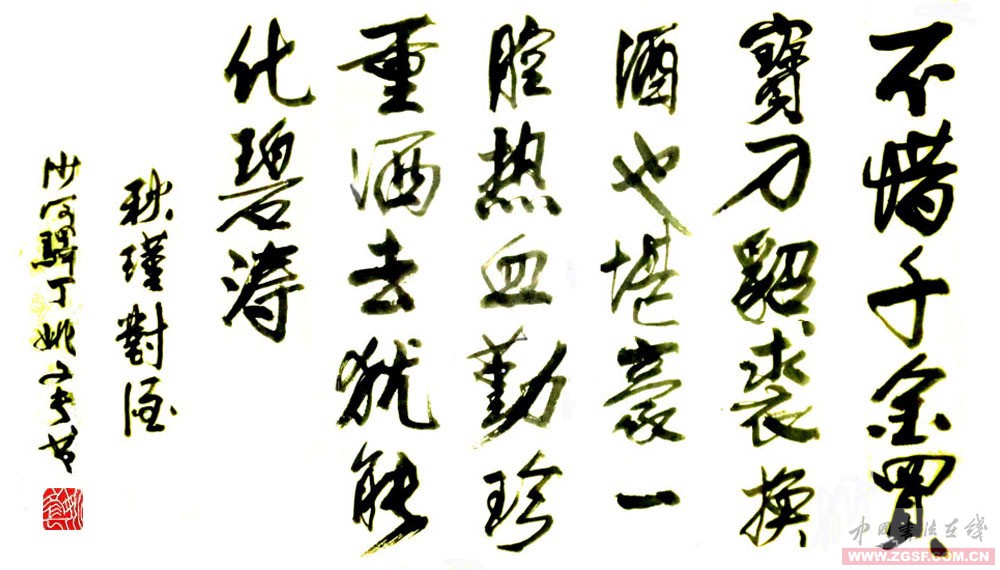 不惜千金買
寶刀貂裘换
酒也堪豪一
腔热血勤珍
重洒去犹能
化碧涛
秋瑾對酒
沙河
中国书法在线
WWW.ZGSF.COM.CN